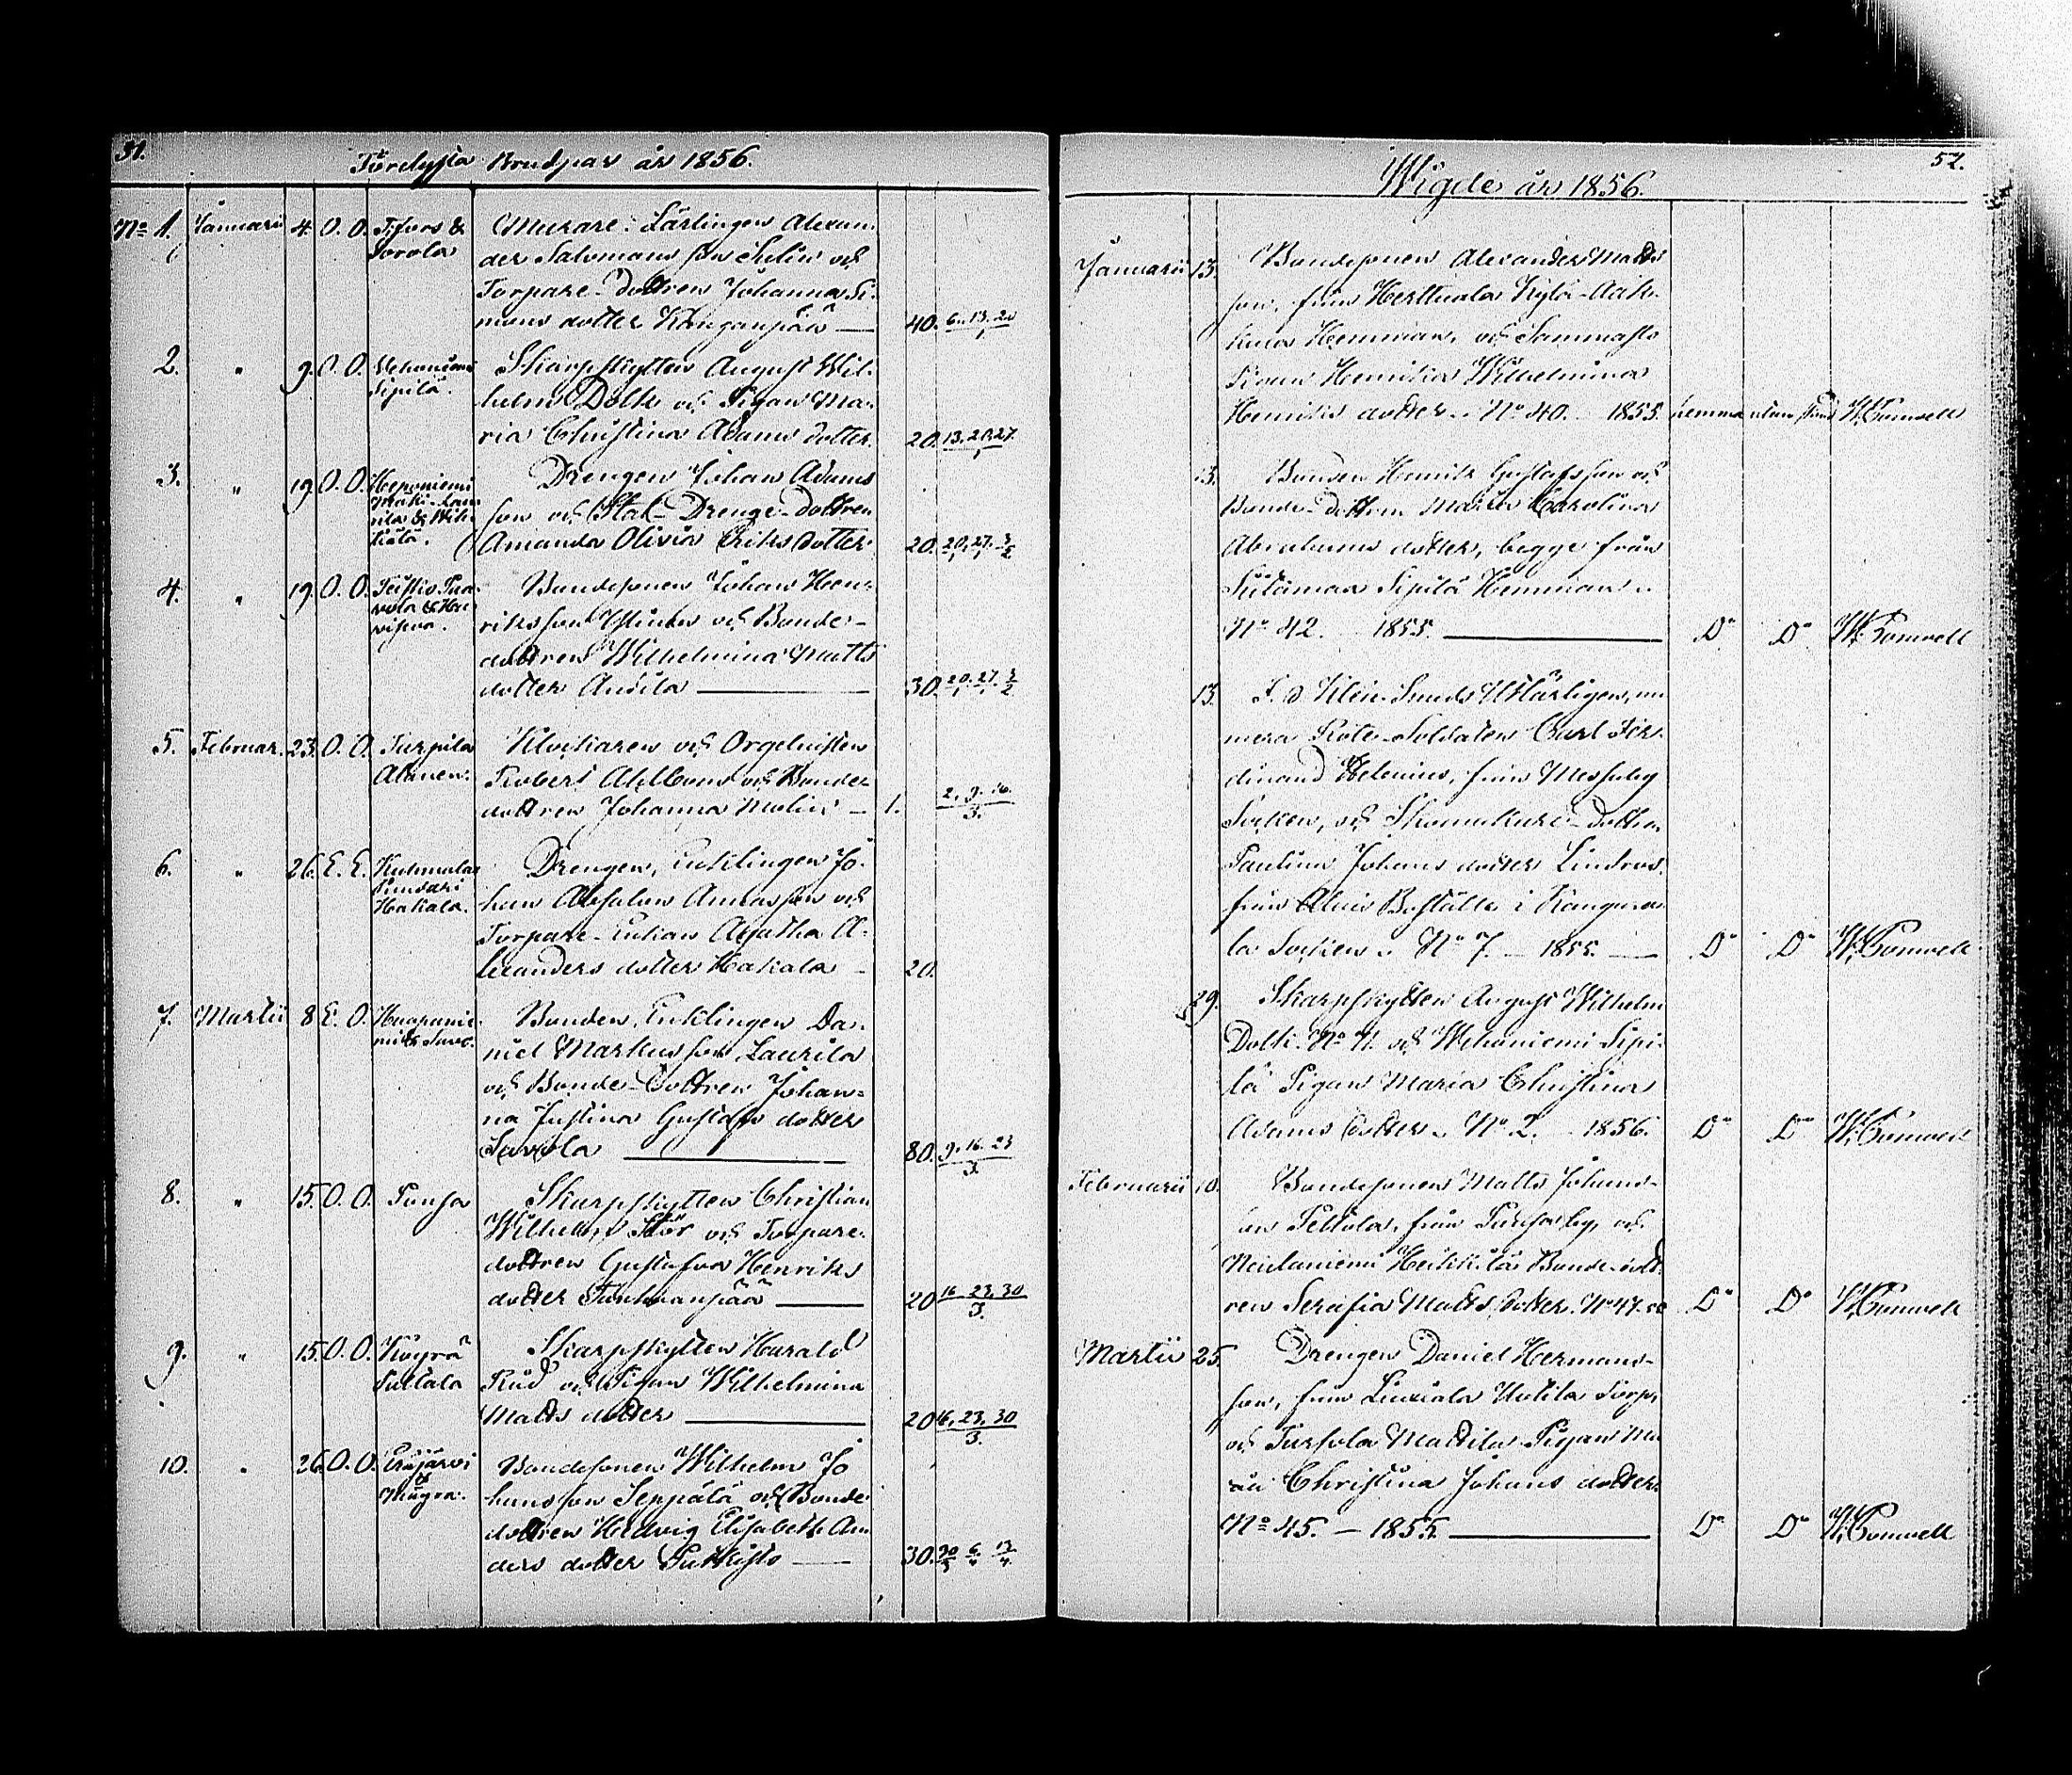 51.
Förelysta Brudpar år 1856.
No 1. Januarii 4. O. O.
Sorola
Murare-Lärlingen Alexan-
der Salomons son Selin och
Torpare-Dottren Johanna Si-
mons dotter Kånganpää —
40. 6. 13. 20
1
2. " 9. O. O. Wehoniemi
Sipilä.
Skarpskytten August Wil-
helm Dolk och Pigan Ma-
ria Christina Adams dotter.
20. 13. 20. 27.
1
3. " 19. O. O. Heponiemi
Drengen Johan Adams
son och Stat-Drenge-dottren
Amanda Olivia Eriks dotter
20. 20/1. 27/1. 3/2
4. " 19. O. O.
Bondesonen Johan Hen-
riksson och Bonde-
dottren Wilhelmina Matts
dotter Anttila —
30. 20/1. 27/1. 3/2
5. Februar. 23. O. O. Turpila
Klockaren och Orgelnisten
Robert Ahlbom och Bonde-
dottren Johanna Malin —
1. 2. 9. 16.
3.
6. " 26. E. E. Kuhmalax
Hakala.
Drengen, Enklingen Jo-
han Absalon Anders son och
Torpare-Enkan Agatha A-
lexanders dotter Hakala —
20.
7. Martii 8 E. O. Haapanie-
mi &
Bonden, Enklingen Da-
niel Markus son Laurila
och Bonde-Dottren Johan-
na Justina Gustafs dotter
Savola —
80. 9. 16. 23
3.
8. " 15. O. O. Punsa
Skarpskytten Christian
Wilhelm Stör och Torpare-
dottren Gustafva Henriks
dotter —
20 16. 23. 30
3.
9. " 15. O. O. Köyrä
Skarpskytten Harald
Rud och Pigan Wilhelmina
Matts dotter —
20 16. 23. 30
3.
10. " 26. O. O. Eräjärvi
&
Bondesonen Wilhelm Jo
hansson Seppälä och Bonde
dottren Hedvig Elisabeth An
ders dotter —
30. 30/3 6/4 13/4
52.
Wigde år 1856.
Januarii 13. Bondesonen Alexander Matts
son, från Herttuala Kylä-Aak-
kula Hemman, och Sammasto
Pigan Henrika Wilhelmina
Henriks dotter. No 40. 1855. hemma utan W. Bomvell
13. Bonden Henrik Gustafsson och
Bonde-dottren Maria Carolina
Abrahams dotter, begge från
Sipilä Hemman
No 42. 1855. — Do Do W. Bomvell
13. nu
mera Rote-Soldaten Carl Fer-
dinand Helenius, från Messuby
Socken, och Skomakare-Dottren
Paulina Johans dotter Lindros.
från Boställe i Kangasa
la Socken. No 7. — 1855. — Do Do W. Bomvell
29. Skarpskytten August Wilhelm
Dolk No 71. och Wehoniemi Sipi-
lä Pigan Maria Christina
Adams dotter. No 2. 1856. Do Do W. Bomvell
Februarii 10. Bondesonen Matts Johans-
son från by, och
Heikkilä Bonde-dott-
ren Serafia Matts dotter. No 47. Do Do W. Bomvell
Martii 25. Drengen Daniel Hermans-
son, från Liuxiala Torp,
och Tursola Mattila Pigan Ma
ria Christina Johans dotter.
No 45. — 1855. — Do Do W. Bomvell